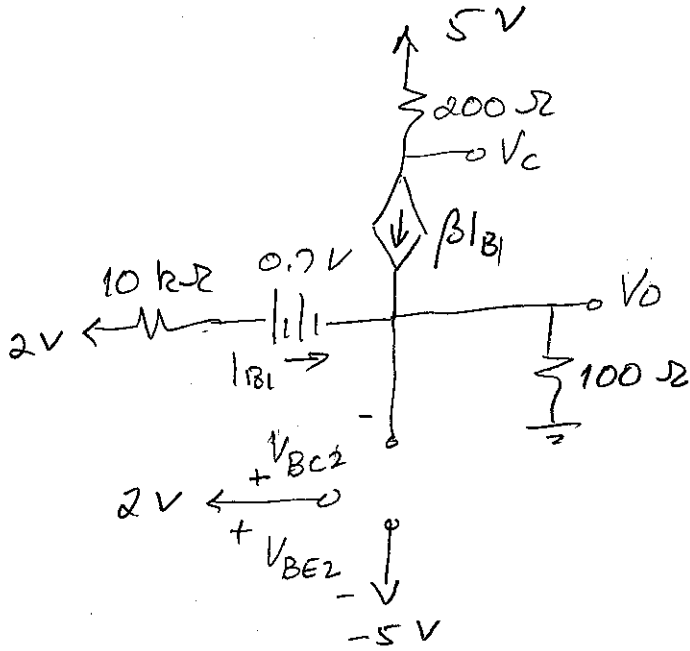 5 V
200 Ω
Vc
βI_B1
10 kΩ
0.7 V
2V
I_B1
Vo
100 Ω
-
V_BC2
+
2 V
+
V_BE2
-
-5 V